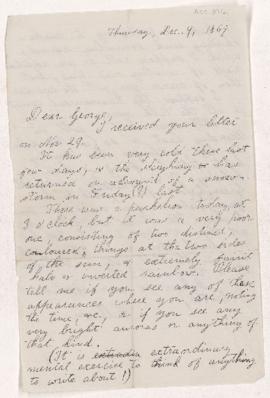 Thursday, Dec. 9, 1869
Dear George,
I received your letter
on Nov 29.
It has been very cold these last
few days, & the sleighing has
returned on account of a snow-
storm on Friday(?) last.
There was a parhelion today at
3 o'clock, but it was a very poor
one, consisting of two distinct,
coloured, things at the two sides
of the sun, & extremely faint
halo & inverted rainbow. Please
tell me if you see any of these
appearances where you are, noting
the time, &c, & if you see any
very bright auroras or anything of
that kind.
(It is extraordinary
mental exercise to think of anything
to write about!)